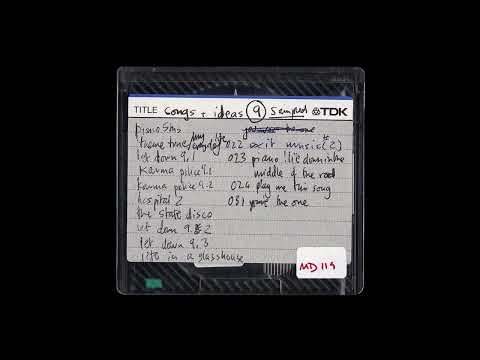 TITLE songs + ideas 9 sampled TDK
piano SMS
theme tune / my life / everyday
let down 9.1
karma police 9.1
karma police 9.2
hospital 2
the state disco
let down 9.2
let down 9.3
life in a glasshouse
you're the one
022 exit music (2)
023 piano! lie down in the
middle of the road
024 play me this song
031 you're the one
MD 119